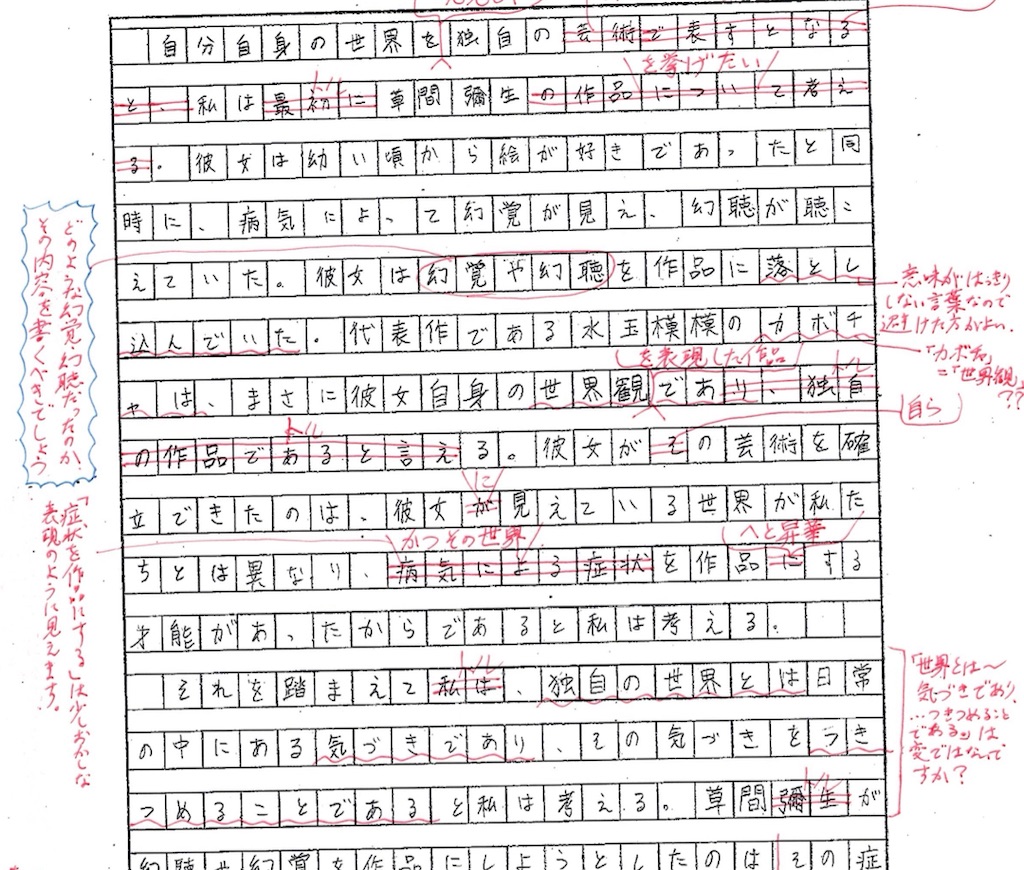 自分自身の世界を独自の芸術で表すとなる
を挙げたい
トル
と、私は最初に草間彌生の作品について考え
る。彼女は幼い頃から絵が好きであったと同
時に、病気によって幻覚が見え、幻聴が聴こ
えていた。彼女は幻覚や幻聴を作品に落とし
込んでいた。代表作である水玉模模のカボチ
を表現した作品
トル
ャは、まさに彼女自身の世界観であり、独自
トル
の作品であると言える。彼女がその芸術を確
に
立できたのは、彼女が見えている世界が私た
かつその世界
へと昇華
ちとは異なり、病気による症状を作品にする
才能があったからであると私は考える。
トル
それを踏まえて私は、独自の世界とは日常
の中にある気づきであり、その気づきをつき
トル
つめることであると私は考える。草間彌生が
幻聴や幻覚を作品にしようとしたのはその症
どのような幻覚・幻聴だったのか、
その内容を書くべきでしょう
「症状を作品にする」は少しおかしな
表現のように見えます。
意味がはっきり
しない言葉なので
避けた方がよい.
「カボチャ」
=「世界観」
??
自ら
「世界とは〜
気づきであり、
…つきつめること
である」は
変ではないで
すか?